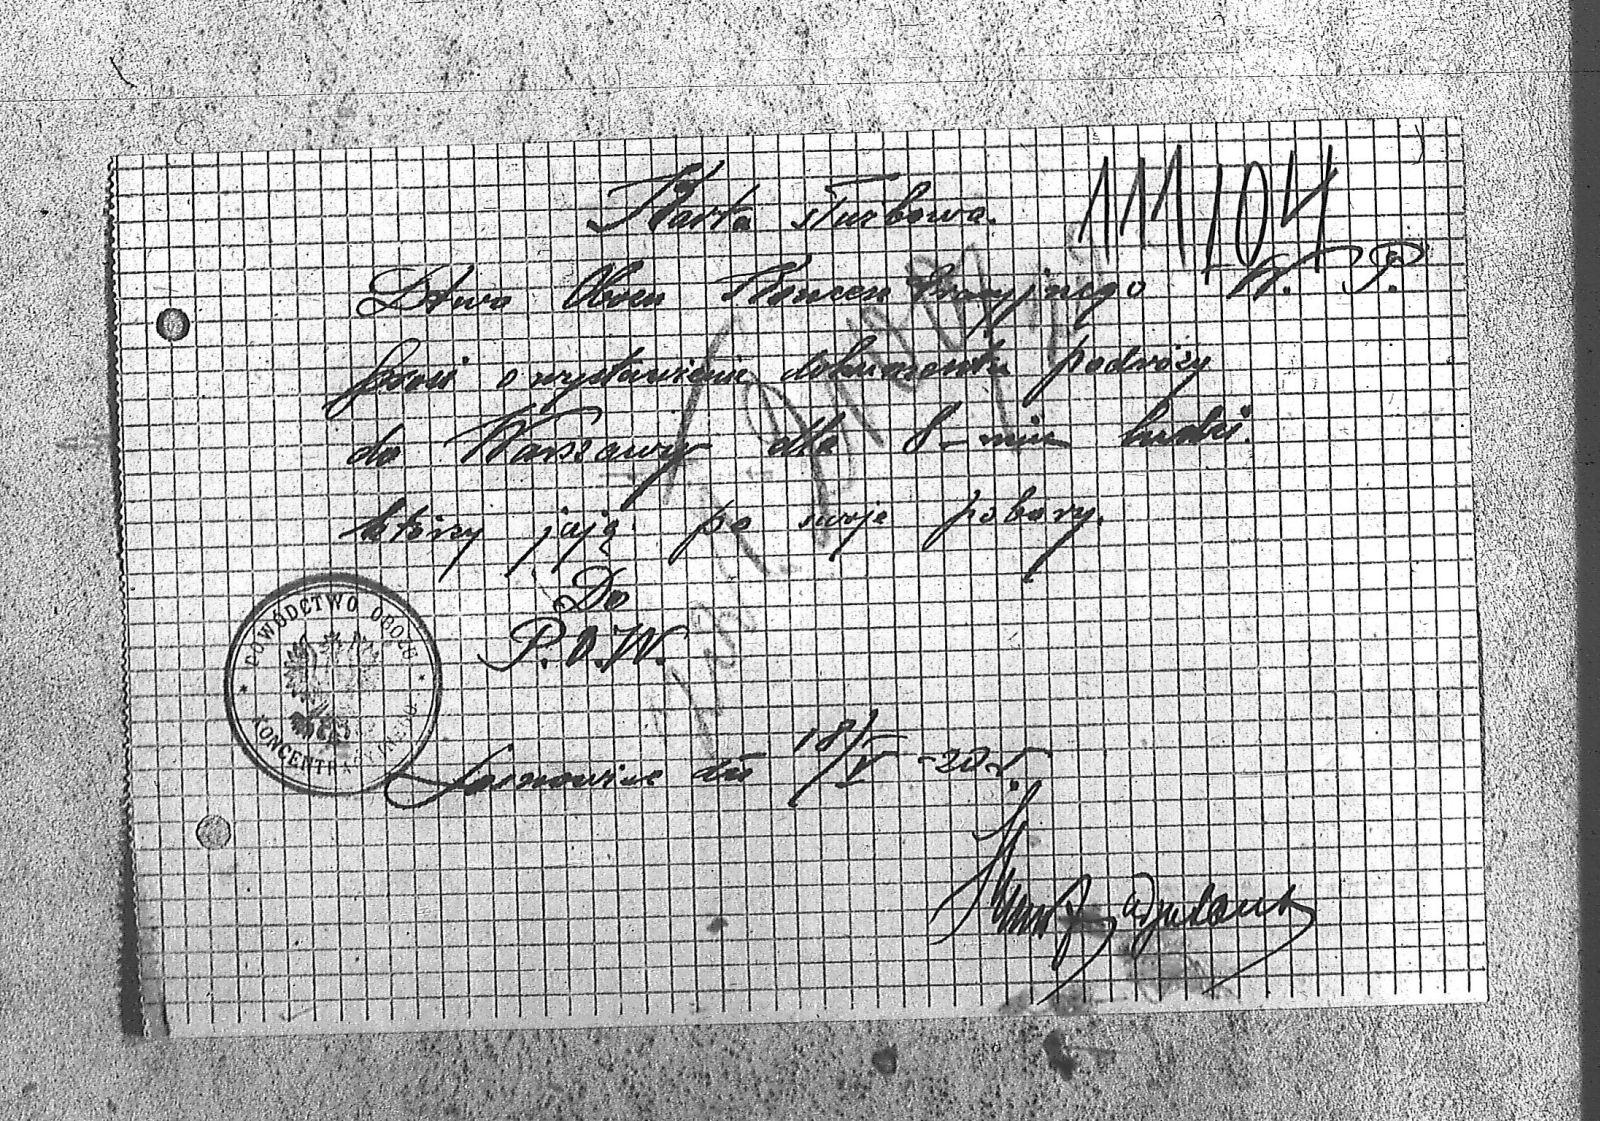 111/104
Karta służbowa.
Dztwo Obozu Koncentracyjnego W. P.
prosi o wystawienie dokumentu podróży
do Warszawy dla 8-miu ludzi.
którzy jają po swoje pobory.
Do
P.O.W.
DOWÓDZTWO OBOZU
KONCENTRACYJNEGO
Sosnowice dn 18/V -20 r.
adjutant